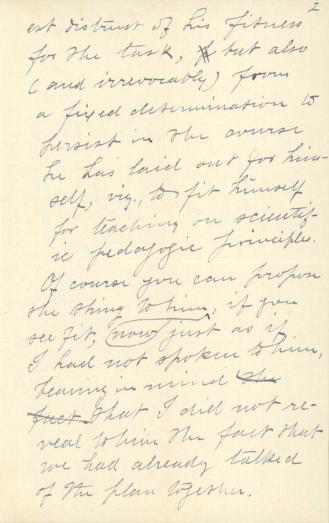 2
est distrust of his fitness
for the task, but also
(and irrevocably) from
a fixed determination to
persist in the course
he has laid out for him-
self, viz., to fit himself
for teaching on scientif-
ic pedagogic principles.
Of course you can propose
the thing to him, if you
see fit, now just as if
I had not spoken to him,
bearing in mind the
fact that I did not re-
veal to him the fact that
we had already talked
of the plan together.